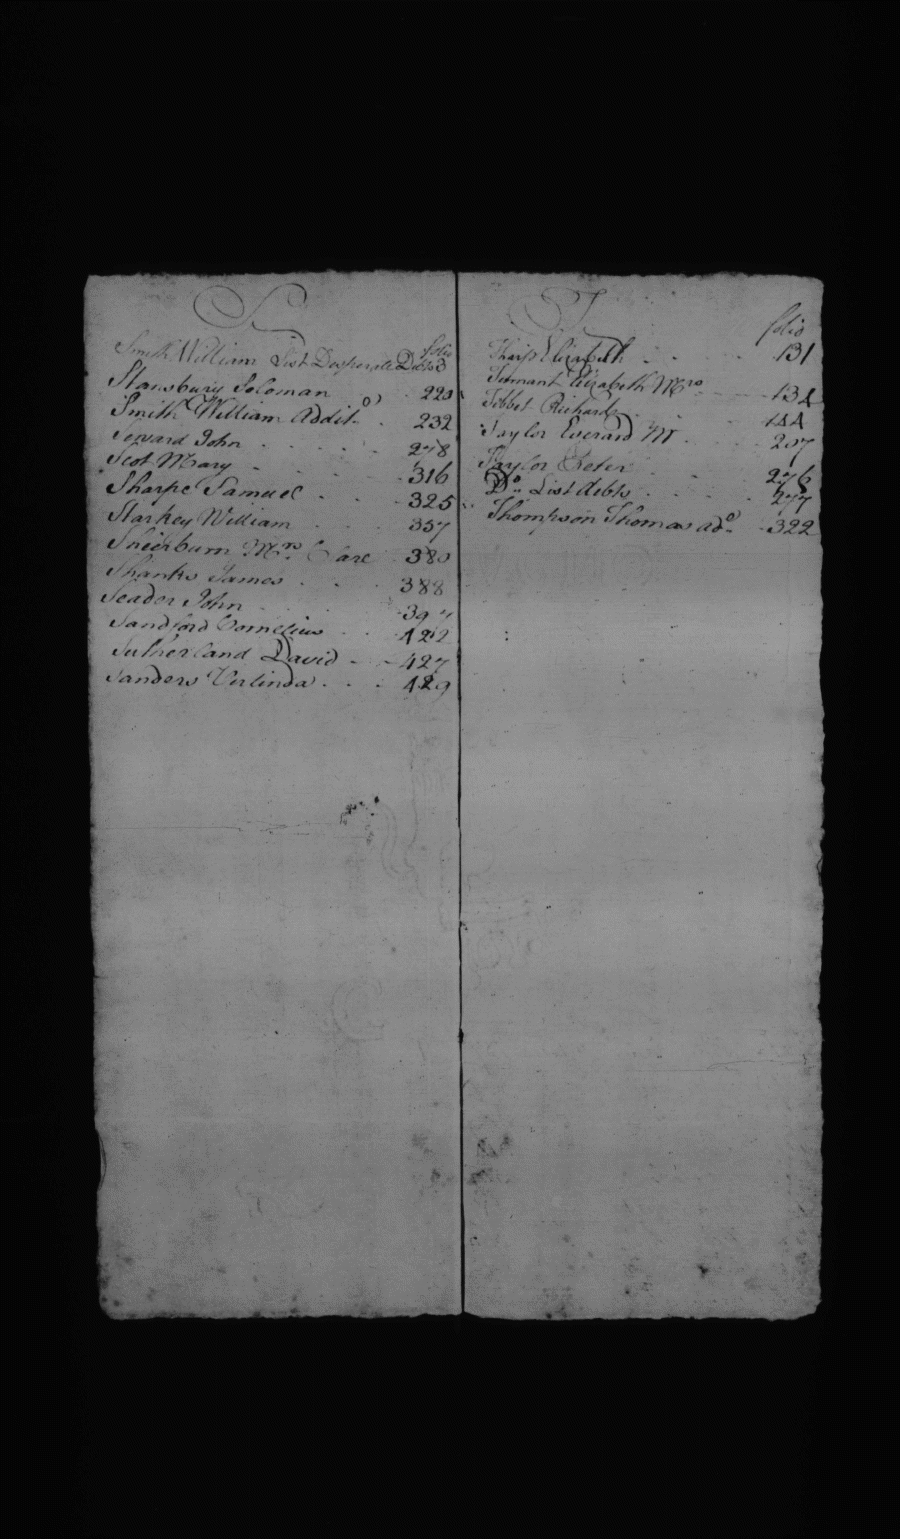 S
folio
Smith William List Desperate Debts 3
Stansbury Soloman 220
Smith William Addit.o 232
Seward John 278
Scot Mary 316
Sharpe Samuel 325
Starkey William 357
Mrs Clare 380
Shanks James 388
Seader John 397
Sandford Cornelius 422
Sutherland David 427
Sanders Verlinda 429
T
folio
Tharp Elizabeth 131
Elizabeth Mrs 134
Tibbet Richard 144
Taylor Everard M 207
Taylor Peter 276
Do List debts 277
Thompson Thomas ado 322